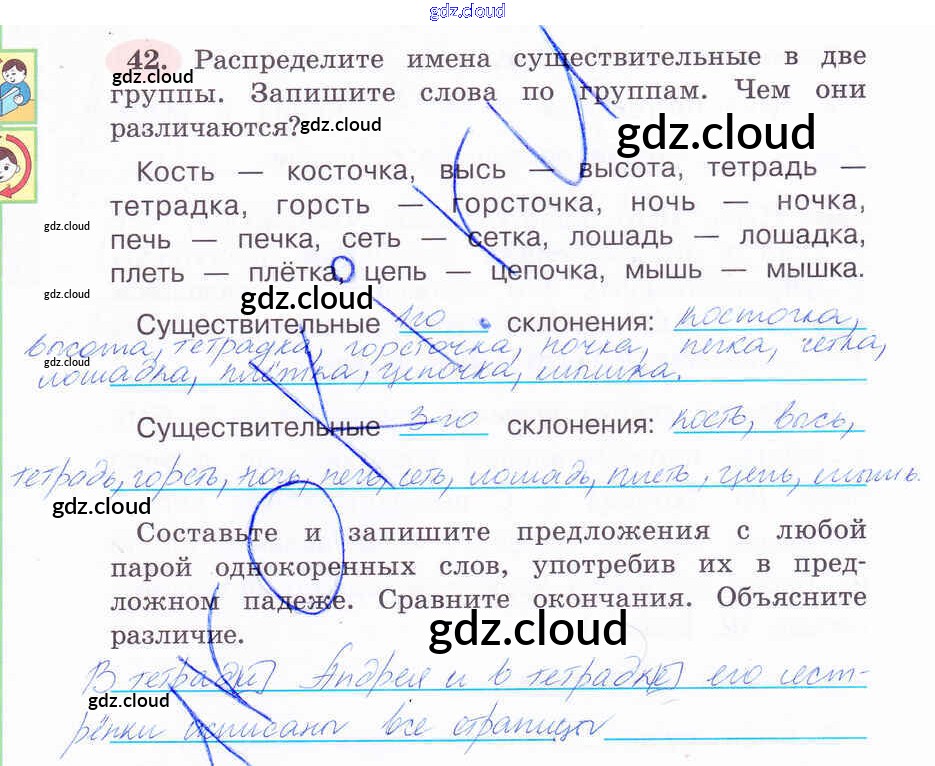 gdz.cloud
42. Распределите имена существительные в две
gdz.cloud
группы. Запишите слова по группам. Чем они
различаются?
gdz.cloud
gdz.cloud
Кость — косточка, высь — высота, тетрадь —
тетрадка, горсть — горсточка, ночь — ночка,
gdz.cloud
печь — печка, сеть — сетка, лошадь — лошадка,
плеть — плётка, цепь — цепочка, мышь — мышка.
gdz.cloud
gdz.cloud
Существительные 1-го склонения: косточка,
высота, тетрадка, горсточка, ночка, печка, сетка,
gdz.cloud
лошадка, плётка, цепочка, мышка.
Существительные 3-го склонения: кость, высь,
тетрадь, горсть, ночь, печь, сеть, лошадь, плеть, цепь, мышь.
gdz.cloud
Составьте и запишите предложения с любой
парой однокоренных слов, употребив их в пред-
ложном падеже. Сравните окончания. Объясните
различие.
gdz.cloud
В тетради Андрея и в тетрадке его сест-
gdz.cloud
рёнки исписаны все страницы